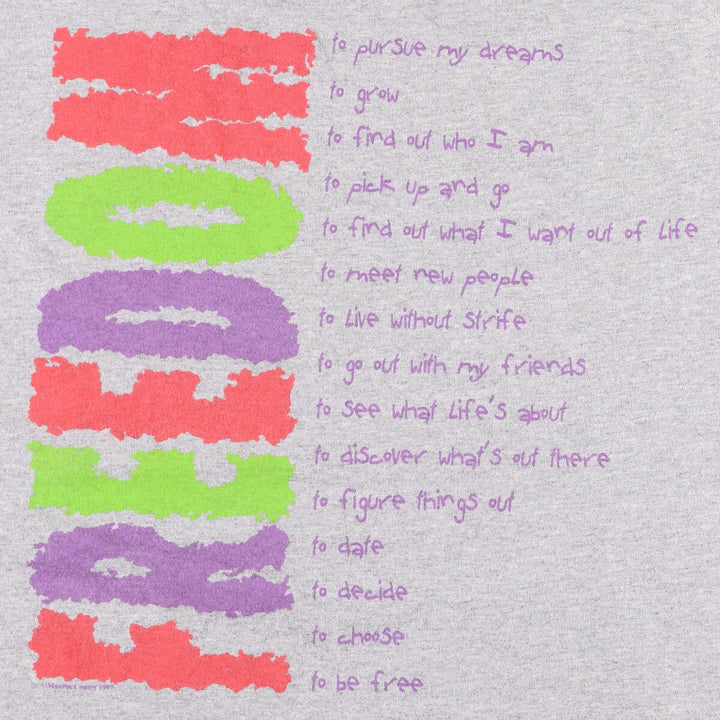 FREEDOM
to pursue my dreams
to grow
to find out who I am
to pick up and go
to find out what I want out of life
to meet new people
to live without strife
to go out with my friends
to see what life's about
to discover what's out there
to figure things out
to date
to decide
to choose
to be free
©Monroe County 1997